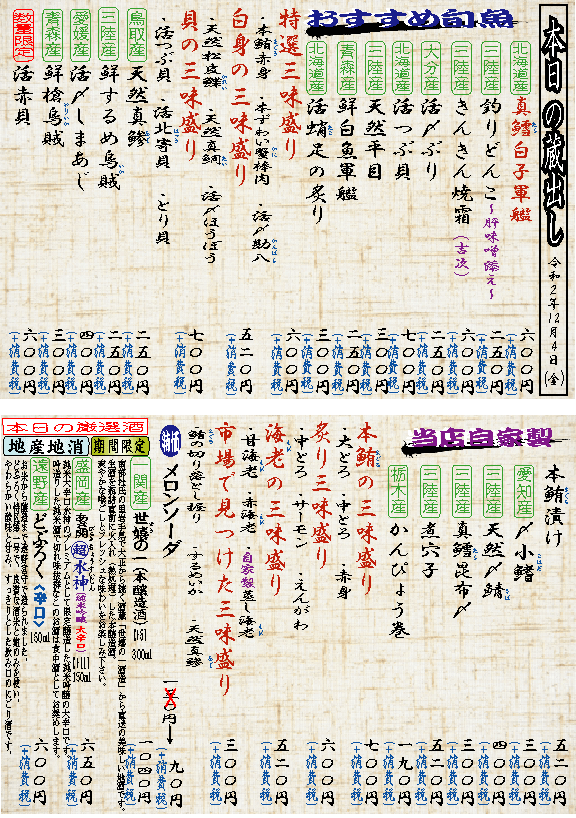 本日の蔵出し
令和2年12月4日(金)
おすすめ旬魚
北海道産 真鱈白子軍艦 六〇〇円(+消費税)
三陸産 釣りどんこ~肝味噌添え~ 二五〇円(+消費税)
三陸産 きんきん焼霜(吉次) 六〇〇円(+消費税)
大分産 活〆ぶり 二五〇円(+消費税)
北海道産 活つぶ貝 七〇〇円(+消費税)
三陸産 天然平目 三〇〇円(+消費税)
青森産 鮮白魚軍艦 三〇〇円(+消費税)
北海道産 活蛸足の炙り 三〇〇円(+消費税)
特選三味盛り 六〇〇円(+消費税)
・本鮪赤身 ・本ずわい蟹棒肉 ・活〆勘八
白身の三味盛り 五二〇円(+消費税)
・天然松皮鰈 ・天然真鯛 ・活〆ほうぼう
貝の三味盛り 七〇〇円(+消費税)
・活つぶ貝 ・活北寄貝 ・とり貝
鳥取産 天然真鯵 二五〇円(+消費税)
三陸産 鮮するめ烏賊 二五〇円(+消費税)
愛媛産 活〆しまあじ 四〇〇円(+消費税)
青森産 鮮槍烏賊 三〇〇円(+消費税)
数量限定 活赤貝 六〇〇円(+消費税)
当店自家製
本鮪漬け 五二〇円(+消費税)
愛知産 〆小鰭 三〇〇円(+消費税)
三陸産 天然〆鯖 四〇〇円(+消費税)
三陸産 真鱈昆布〆 三〇〇円(+消費税)
三陸産 煮穴子 五二〇円(+消費税)
栃木産 かんぴょう巻 一九〇円(+消費税)
本鮪の三味盛り 七〇〇円(+消費税)
・大とろ ・中とろ ・赤身
炙り三味盛り 六〇〇円(+消費税)
・中とろ ・サーモン ・えんがわ
海老の三味盛り 五二〇円(+消費税)
・甘海老 ・赤海老 ・自家製蒸し海老
市場で見つけた三味盛り 三〇〇円(+消費税)
・鮪の切り落とし握り ・するめいか ・天然真鯵
特価 メロンソーダ 一五〇円→九〇円(+消費税)
本日の厳選酒
地産地消 期間限定
一関産 世嬉の一(本醸造酒) 300ml 一〇四〇円(+消費税)
盛岡産 超水神(純米吟醸 大辛口) 150ml 六五〇円(+消費税)
遠野産 どぶろく<辛口> 180ml 六〇〇円(+消費税)